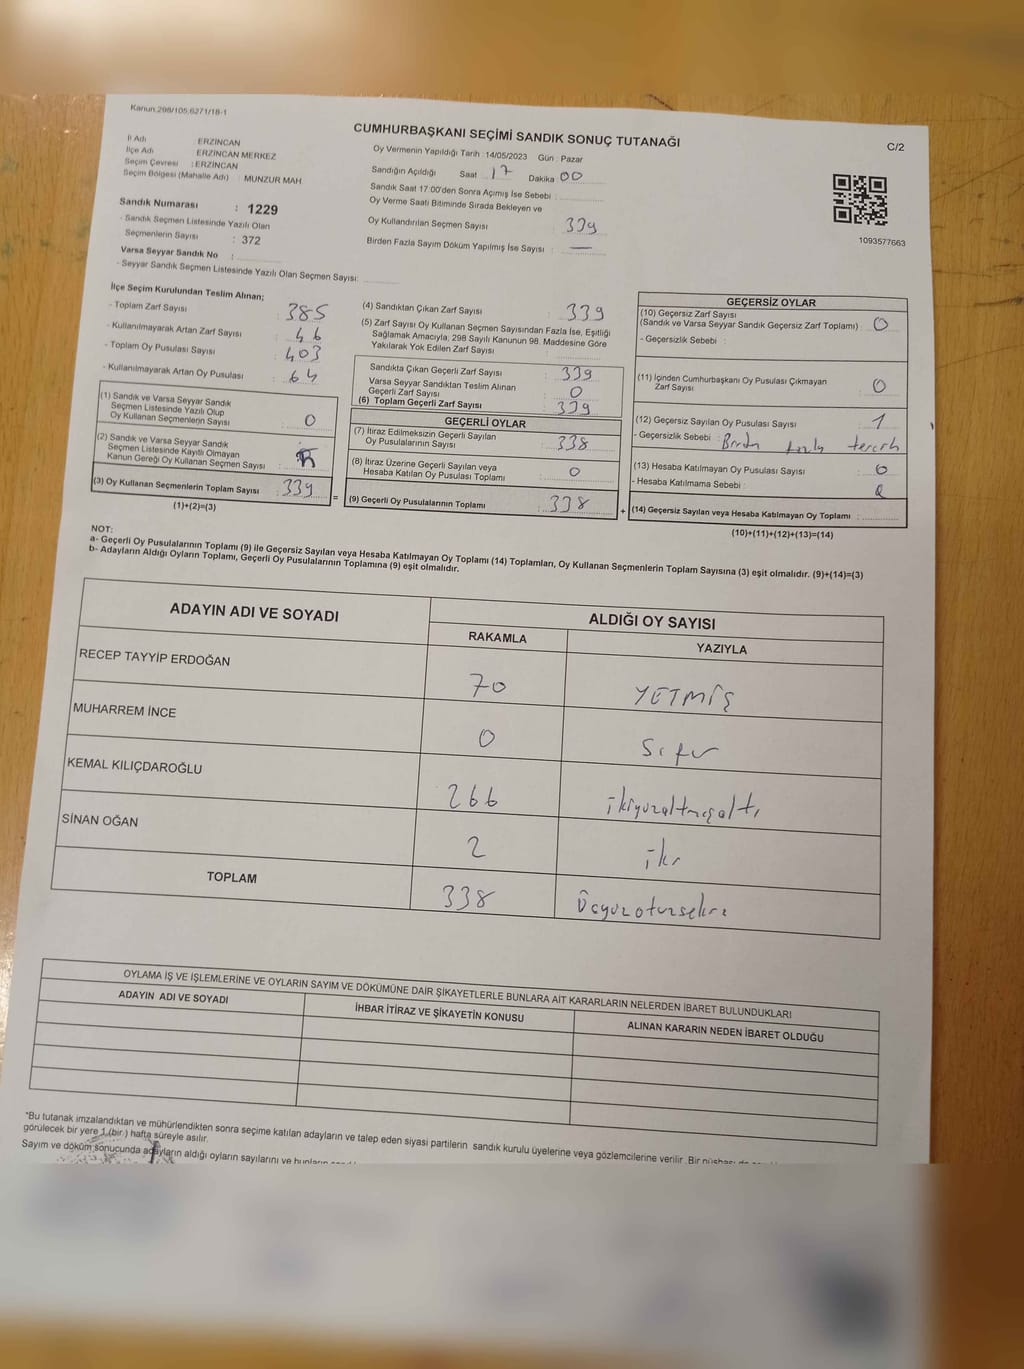 Kanun:298/105,6271/18-1
CUMHURBAŞKANI SEÇİMİ SANDIK SONUÇ TUTANAĞI
C/2
İl Adı ERZİNCAN
İlçe Adı ERZİNCAN MERKEZ
Seçim Çevresi : ERZİNCAN
Seçim Bölgesi (Mahalle Adı) : MUNZUR MAH.
Sandık Numarası : 1229
- Sandık Seçmen Listesinde Yazılı Olan
Seçmenlerin Sayısı : 372
Varsa Seyyar Sandık No :
- Seyyar Sandık Seçmen Listesinde Yazılı Olan Seçmen Sayısı:
Oy Vermenin Yapıldığı Tarih : 14/05/2023 Gün : Pazar
Sandığın Açıldığı Saat 17 Dakika 00
Sandık Saat 17:00'den Sonra Açımış İse Sebebi :
Oy Verme Saati Bitiminde Sırada Bekleyen ve
Oy Kullandırılan Seçmen Sayısı : 339
Birden Fazla Sayım Döküm Yapılmış İse Sayısı : —
1093577663
İlçe Seçim Kurulundan Teslim Alınan;
- Toplam Zarf Sayısı : 385
- Kullanılmayarak Artan Zarf Sayısı : 46
- Toplam Oy Pusulası Sayısı : 403
- Kullanılmayarak Artan Oy Pusulası : 64
(1) Sandık ve Varsa Seyyar Sandık
Seçmen Listesinde Yazılı Olup
Oy Kullanan Seçmenlerin Sayısı : 0
(2) Sandık ve Varsa Seyyar Sandık
Seçmen Listesinde Kayıtlı Olmayan
Kanun Gereği Oy Kullanan Seçmen Sayısı :
(3) Oy Kullanan Seçmenlerin Toplam Sayısı : 339
(1)+(2)=(3)
(4) Sandıktan Çıkan Zarf Sayısı : 339
(5) Zarf Sayısı Oy Kullanan Seçmen Sayısından Fazla İse, Eşitliği
Sağlamak Amacıyla; 298 Sayılı Kanunun 98. Maddesine Göre
Yakılarak Yok Edilen Zarf Sayısı :
Sandıkta Çıkan Geçerli Zarf Sayısı : 339
Varsa Seyyar Sandıktan Teslim Alınan
Geçerli Zarf Sayısı : 0
(6) Toplam Geçerli Zarf Sayısı : 339
GEÇERLİ OYLAR
(7) İtiraz Edilmeksizin Geçerli Sayılan
Oy Pusulalarının Sayısı : 338
(8) İtiraz Üzerine Geçerli Sayılan veya
Hesaba Katılan Oy Pusulası Toplamı : 0
= (9) Geçerli Oy Pusulalarının Toplamı : 338 +
GEÇERSİZ OYLAR
(10) Geçersiz Zarf Sayısı
(Sandık ve Varsa Seyyar Sandık Geçersiz Zarf Toplamı) : 0
- Geçersizlik Sebebi :
(11) İçinden Cumhurbaşkanı Oy Pusulası Çıkmayan
Zarf Sayısı : 0
(12) Geçersiz Sayılan Oy Pusulası Sayısı : 1
- Geçersizlik Sebebi : Birden fazla tercih
(13) Hesaba Katılmayan Oy Pusulası Sayısı : 0
- Hesaba Katılmama Sebebi :
(14) Geçersiz Sayılan veya Hesaba Katılmayan Oy Toplamı :
(10)+(11)+(12)+(13)=(14)
NOT:
a- Geçerli Oy Pusulalarının Toplamı (9) ile Geçersiz Sayılan veya Hesaba Katılmayan Oy Toplamı (14) Toplamları, Oy Kullanan Seçmenlerin Toplam Sayısına (3) eşit olmalıdır. (9)+(14)=(3)
b- Adayların Aldığı Oyların Toplamı, Geçerli Oy Pusulalarının Toplamına (9) eşit olmalıdır.
ADAYIN ADI VE SOYADI ALDIĞI OY SAYISI
RAKAMLA YAZIYLA
RECEP TAYYİP ERDOĞAN 70 YETMİŞ
MUHARREM İNCE 0 Sıfır
KEMAL KILIÇDAROĞLU 266 ikiyüzaltmışaltı
SİNAN OĞAN 2 iki
TOPLAM 338 Üçyüzotuzsekiz
OYLAMA İŞ VE İŞLEMLERİNE VE OYLARIN SAYIM VE DÖKÜMÜNE DAİR ŞİKAYETLERLE BUNLARA AİT KARARLARIN NELERDEN İBARET BULUNDUKLARI
ADAYIN ADI VE SOYADI İHBAR İTİRAZ VE ŞİKAYETİN KONUSU ALINAN KARARIN NEDEN İBARET OLDUĞU
*Bu tutanak imzalandıktan ve mühürlendikten sonra seçime katılan adayların ve talep eden siyasi partilerin sandık kurulu üyelerine veya gözlemcilerine verilir. Bir nüshası da
görülecek bir yere 1 (bir ) hafta süreyle asılır.
Sayım ve döküm sonucunda adayların aldığı oyların sayılarını ve